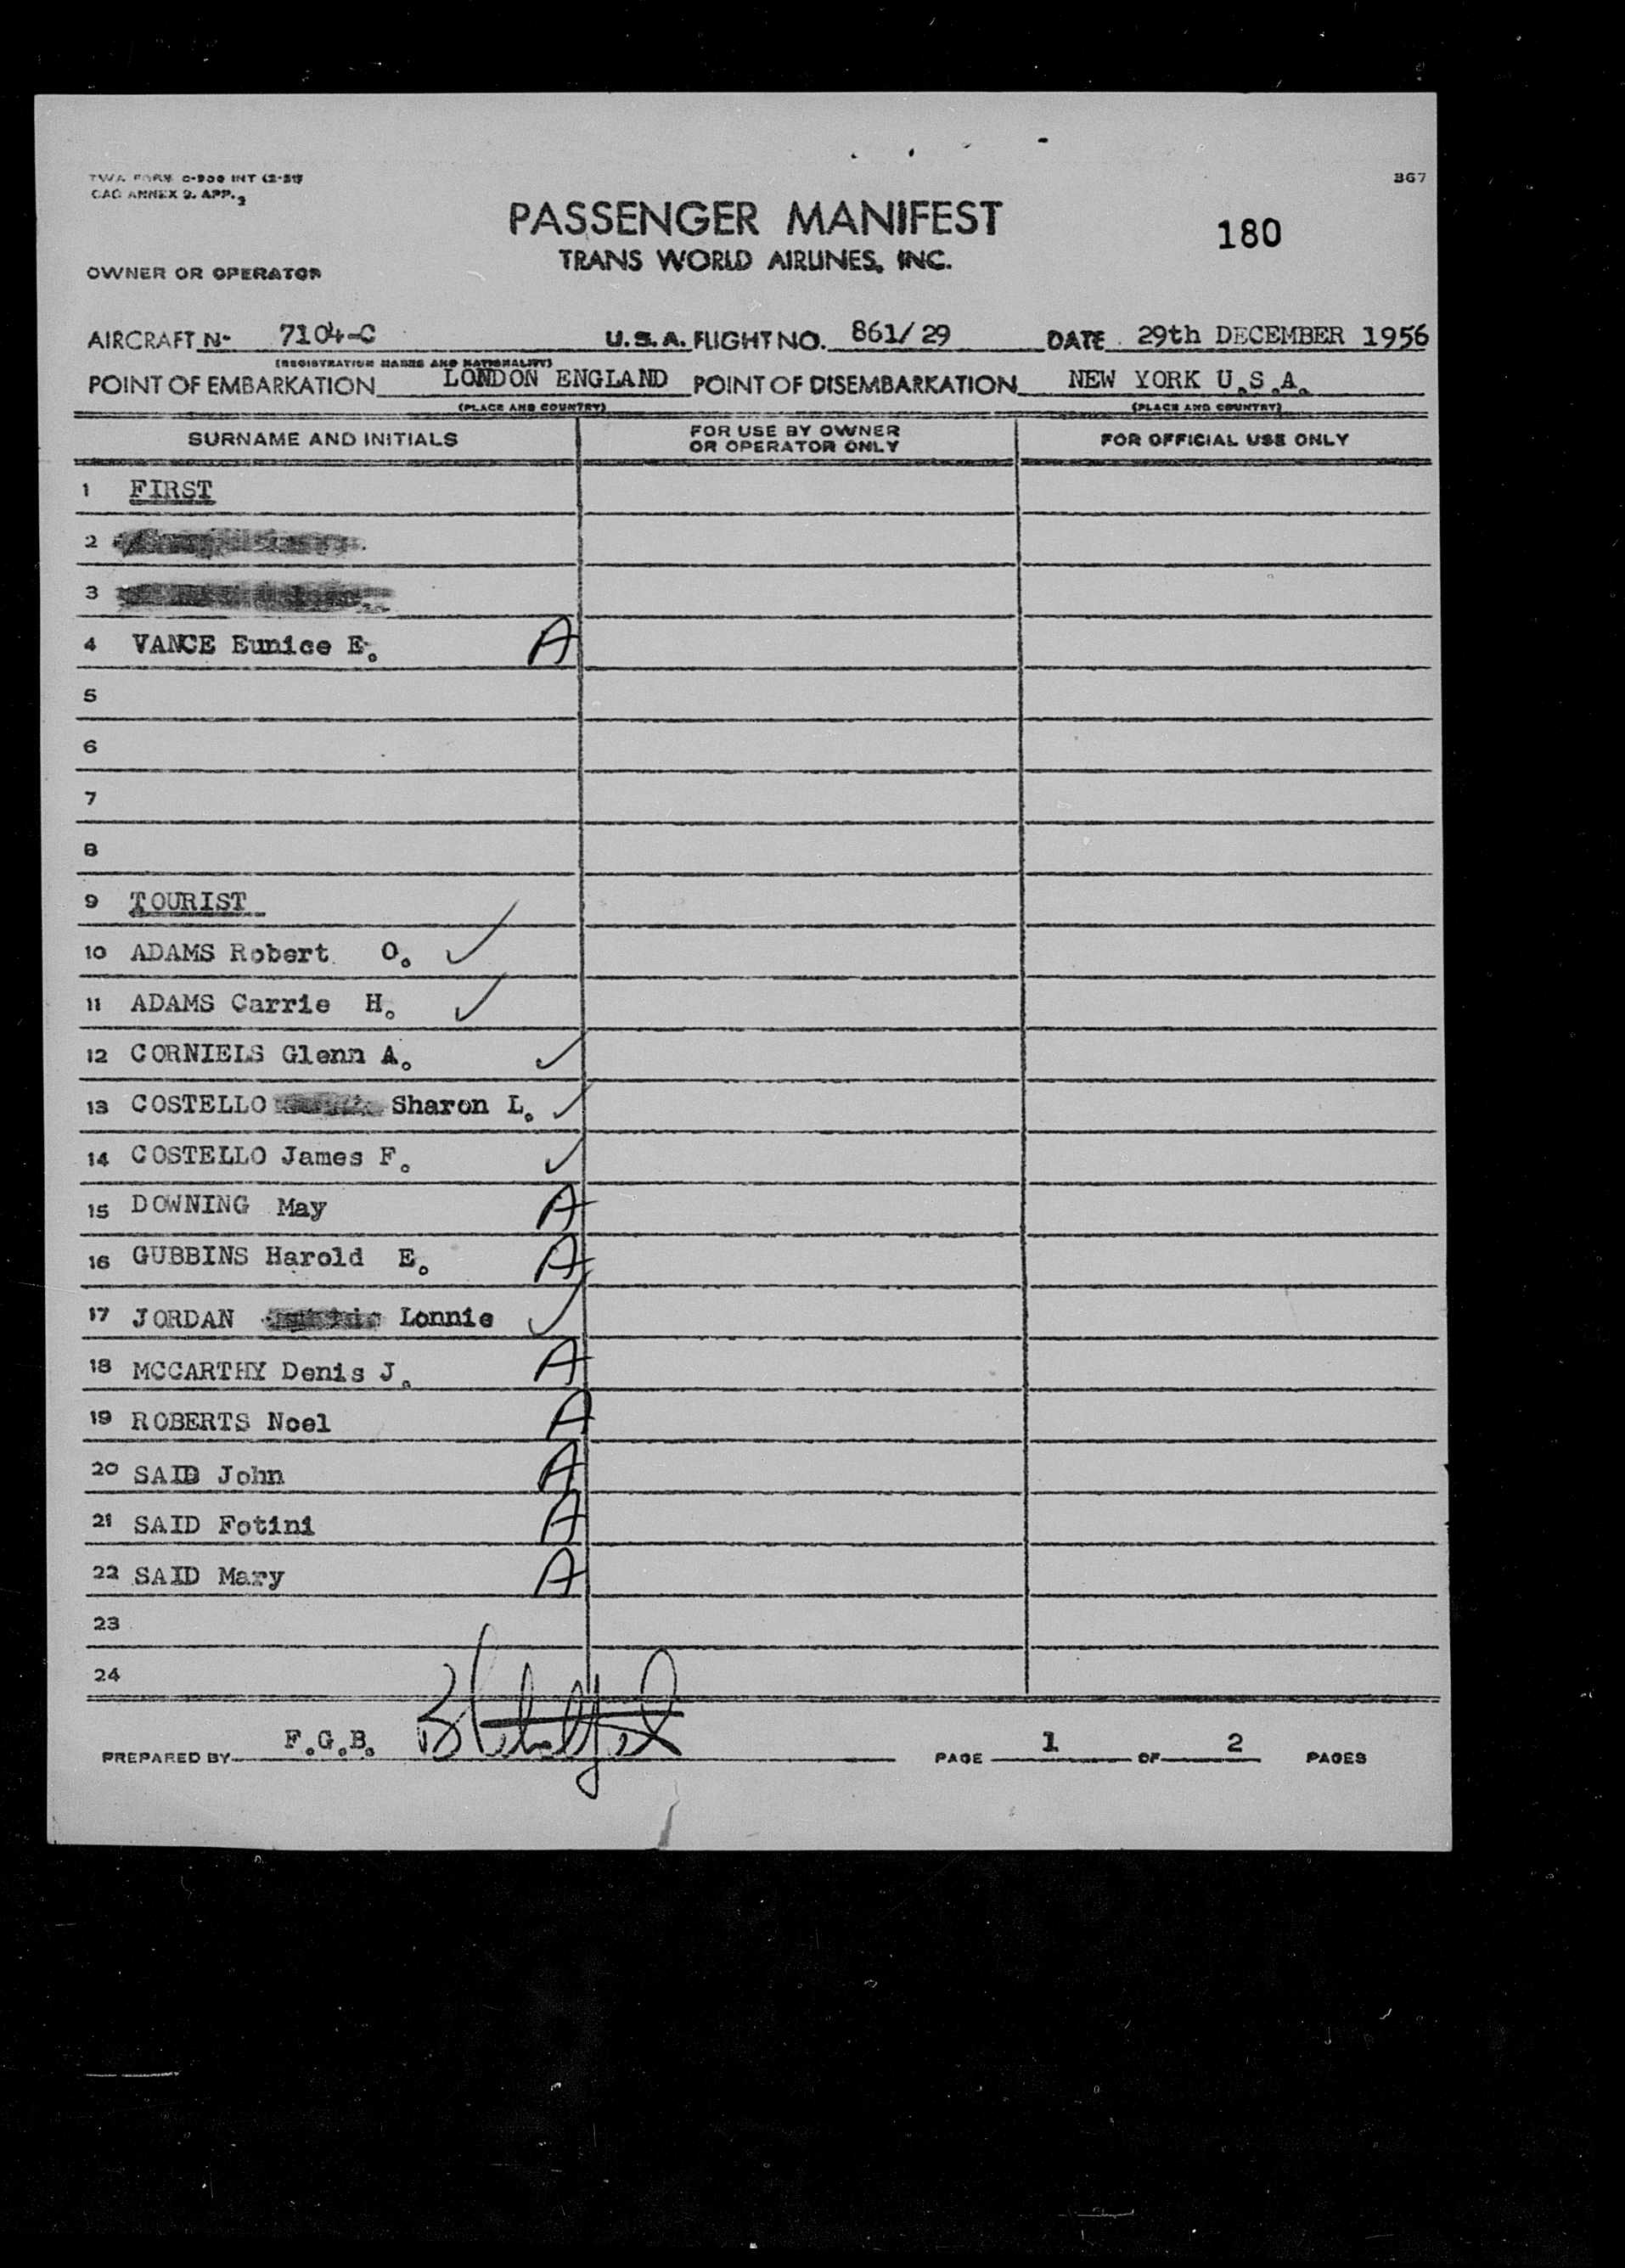 TWA FORM C-900 INT (2-51)
CAO ANNEX 9. APP. 2
867
PASSENGER MANIFEST
180
TRANS WORLD AIRLINES, INC.
OWNER OR OPERATOR
AIRCRAFT No 7104-C U.S.A. FLIGHT NO. 861/29 DATE 29th DECEMBER 1956
(REGISTRATION MARKS AND NATIONALITY)
POINT OF EMBARKATION LONDON ENGLAND POINT OF DISEMBARKATION NEW YORK U.S.A.
(PLACE AND COUNTRY) (PLACE AND COUNTRY)
SURNAME AND INITIALS FOR USE BY OWNER OR OPERATOR ONLY FOR OFFICIAL USE ONLY
1 FIRST
2
3
4 VANCE Eunice E. A
5
6
7
8
9 TOURIST
10 ADAMS Robert O. ✓
11 ADAMS Carrie H. ✓
12 CORNIELS Glenn A. ✓
13 COSTELLO Sharon L. ✓
14 COSTELLO James F. ✓
15 DOWNING May A
16 GUBBINS Harold E. A
17 JORDAN Lonnie ✓
18 MCCARTHY Denis J. A
19 ROBERTS Noel A
20 SAID John A
21 SAID Fotini A
22 SAID Mary A
23
24
PREPARED BY F.G.B. PAGE 1 OF 2 PAGES